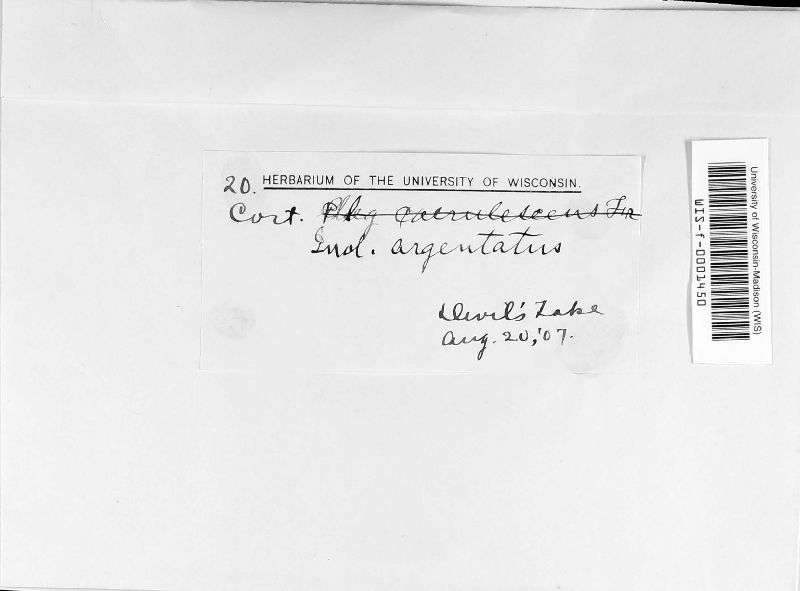 20. HERBARIUM OF THE UNIVERSITY OF WISCONSIN.
Cort. Phleg caerulescens Fr
Inol. argentatus
Devil's Lake
Aug. 20, '07.
University of Wisconsin-Madison (WIS)
WIS-f-0001450